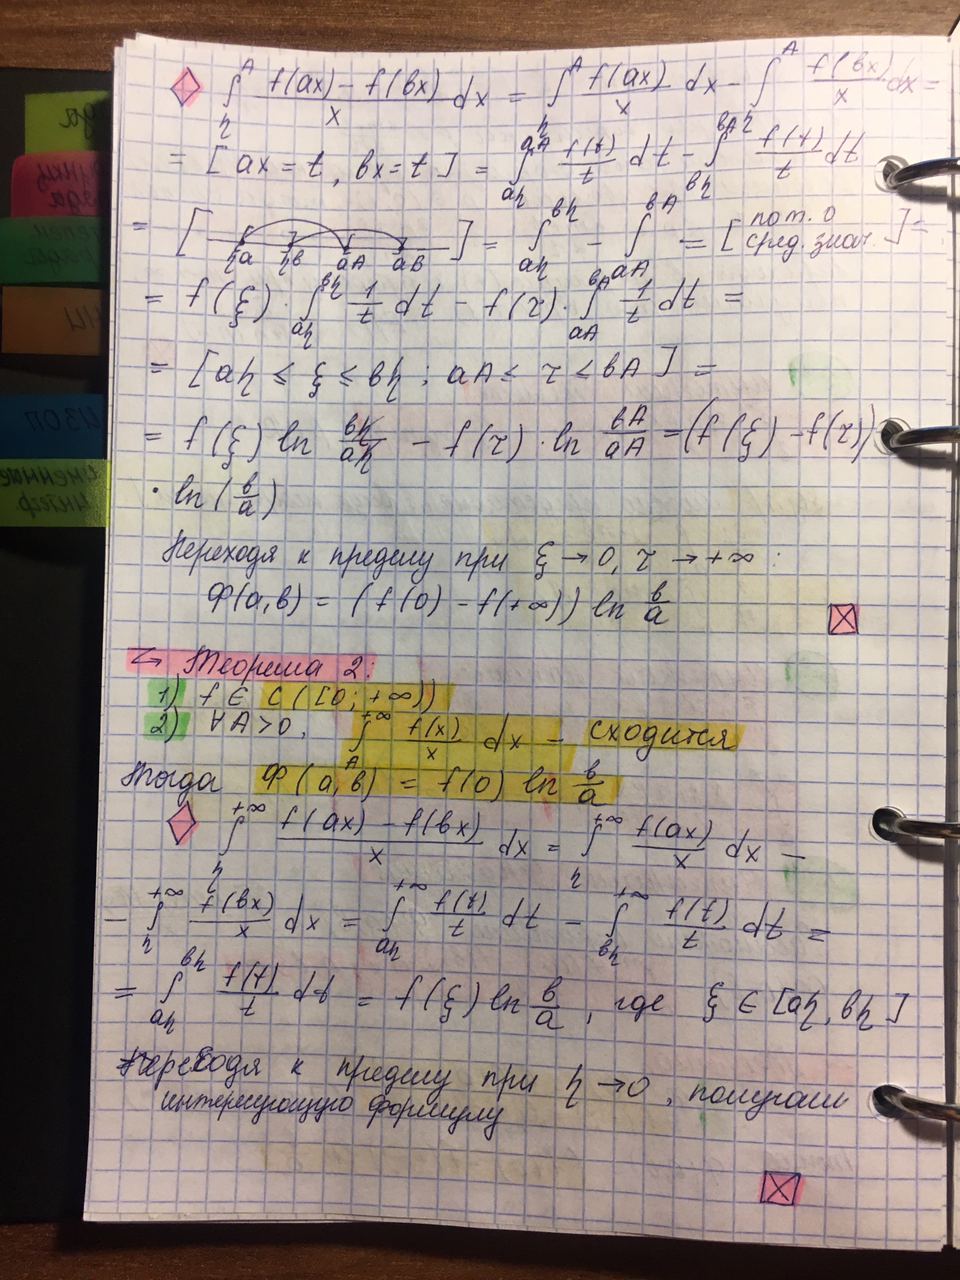 ∫_η^A (f(ax) - f(bx))/x dx = ∫_η^A f(ax)/x dx - ∫_η^A f(bx)/x dx =
= [ax = t, bx = t] = ∫_{aη}^{aA} f(t)/t dt - ∫_{bη}^{bA} f(t)/t dt
= [ηa ηb aA aB] = ∫_{aη}^{bη} - ∫_{aA}^{bA} = [по т. о сред. знач.] =
= f(ξ) · ∫_{aη}^{bη} 1/t dt - f(τ) · ∫_{aA}^{bA} 1/t dt =
= [aη ≤ ξ ≤ ηb ; aA ≤ τ ≤ bA] =
= f(ξ) ln bη/aη - f(τ) · ln bA/aA = (f(ξ) - f(τ))
· ln(b/a)
Переходя к пределу при ξ → 0, τ → +∞ :
Ф(a,b) = (f(0) - f(+∞)) ln b/a
Теорема 2:
1) f ∈ C([0; +∞))
2) ∀A>0, ∫_A^{+∞} f(x)/x dx - сходится
Тогда Ф(a,b) = f(0) ln b/a
∫_η^{+∞} (f(ax) - f(bx))/x dx = ∫_η^{+∞} f(ax)/x dx -
- ∫_η^{+∞} f(bx)/x dx = ∫_{aη}^{+∞} f(t)/t dt - ∫_{bη}^{+∞} f(t)/t dt =
= ∫_{aη}^{bη} f(t)/t dt = f(ξ) ln b/a , где ξ ∈ [aη, bη]
Переходя к пределу при η → 0, получаем
интересующую формулу